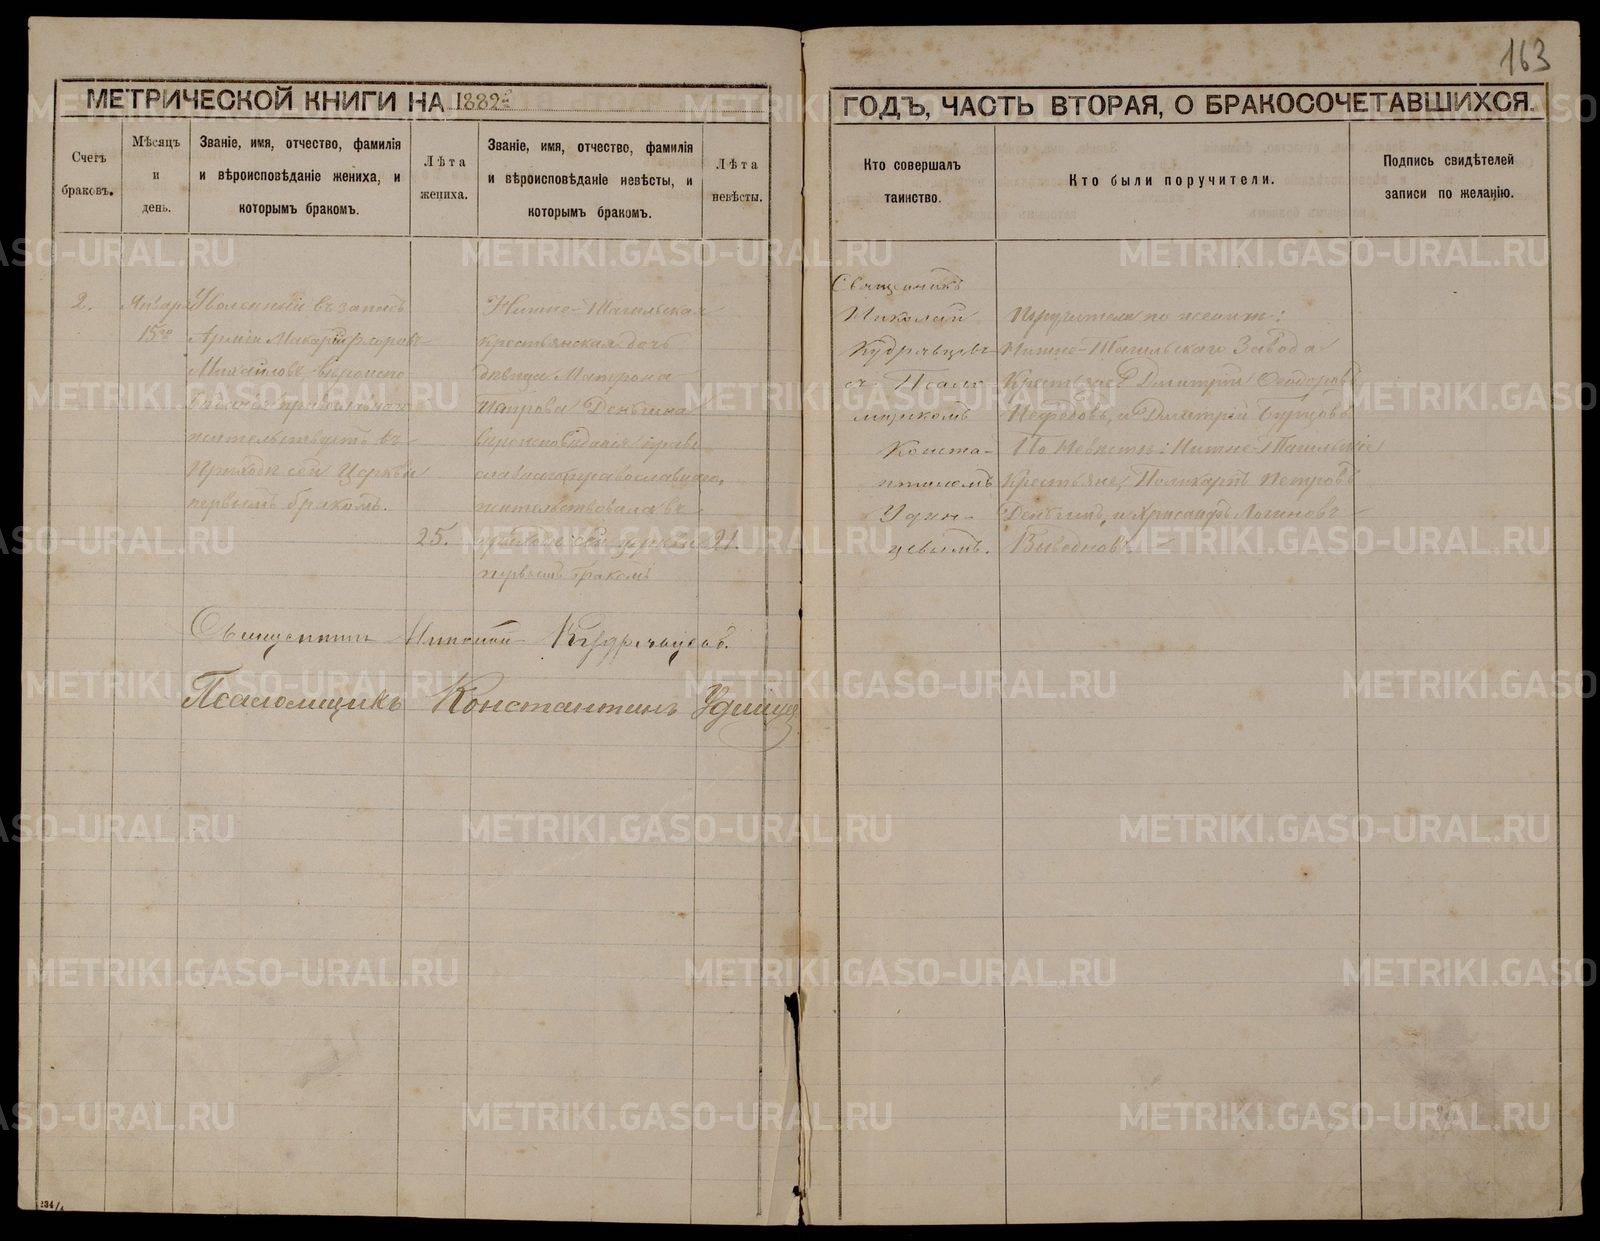 163
МЕТРИЧЕСКОЙ КНИГИ НА 1882й
ГОДЪ, ЧАСТЬ ВТОРАЯ, О БРАКОСОЧЕТАВШИХСЯ.
Счетъ
браковъ.
Мѣсяцъ
и
день.
Званіе, имя, отчество, фамилія
и вѣроисповѣданіе жениха, и
которымъ бракомъ.
Лѣта
жениха.
Званіе, имя, отчество, фамилія
и вѣроисповѣданіе невѣсты, и
которымъ бракомъ.
Лѣта
невѣсты.
Кто совершалъ
таинство.
Кто были поручители.
Подпись свидѣтелей
записи по желанію.
2.
15го
Уволенный въ запасъ
Арміи Макарій Флоровъ
Михайловъ вѣроиспо-
жительствуетъ въ
Приходѣ сей Церкви
первымъ бракомъ.
25.
Нижне-Тагильская
крестьянская дочь
дѣвица Матрона
Петрова Деньгина
вѣроисповѣданія право
славнаго православнаго,
жительствовала въ
приходѣ сей церкви
первымъ бракомъ
21.
Священникъ
Николай
Кудрявцевъ
съ Псало-
мщикомъ
Конста-
нтиномъ
Удин-
цевымъ.
Поручители по женихѣ:
Нижне-Тагильскаго Завода
Крестьяне Дмитрій Ѳеодоровъ
и Дмитрій
По Невѣстѣ: Нижне-Тагильскіе
Крестьяне, Поликарпъ Петровъ
Деньгинъ, и Логиновъ
Священникъ Николай Кудрявцевъ.
Псаломщикъ Константинъ Удинцев
234/1
METRIKI.GASO-URAL.RU